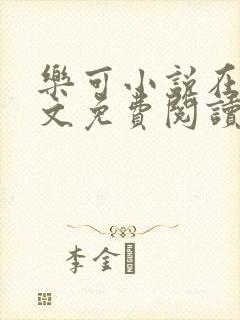 樂可小說在
文免費閱讀
李金